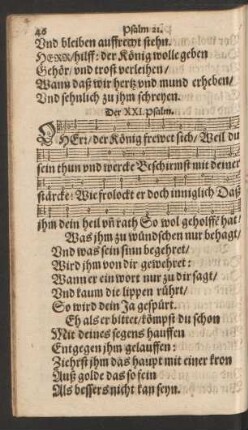 46 Psalm 21.
Vnd bleiben auffrewt stehn.
HERR/hilff: der König wolle geben
Gehör/ vnd trost verleihen/
Wann daß wir hertz vnd mund erheben/
Vnd sehnlich zu jhm schreyen.
Der XXI. Psalm.
O HErr/ der König frewet sich/ Weil du
sein thun vnd wercke Beschirmst mit deiner
stärcke: Wie frolockt er doch inniglich Daß
jhm dein heil vñ rath So wol geholffẽ hat
Was jhm zu wündschen nur behagt/
Vnd was sein sinn begehret/
Wird jhm von dir gewehret:
Wann er ein wort nur zu dir sagt/
Vnd kaum die lippen rührt/
So wird dein Ja gespürt.
Eh als er bittet/ kömpst du schon
Mit deines segens hauffen
Entgegen jhm gelauffen:
Ziehrst jhm das haupt mit einer kron
Auß golde das so fein
Als bessers nicht kan seyn.